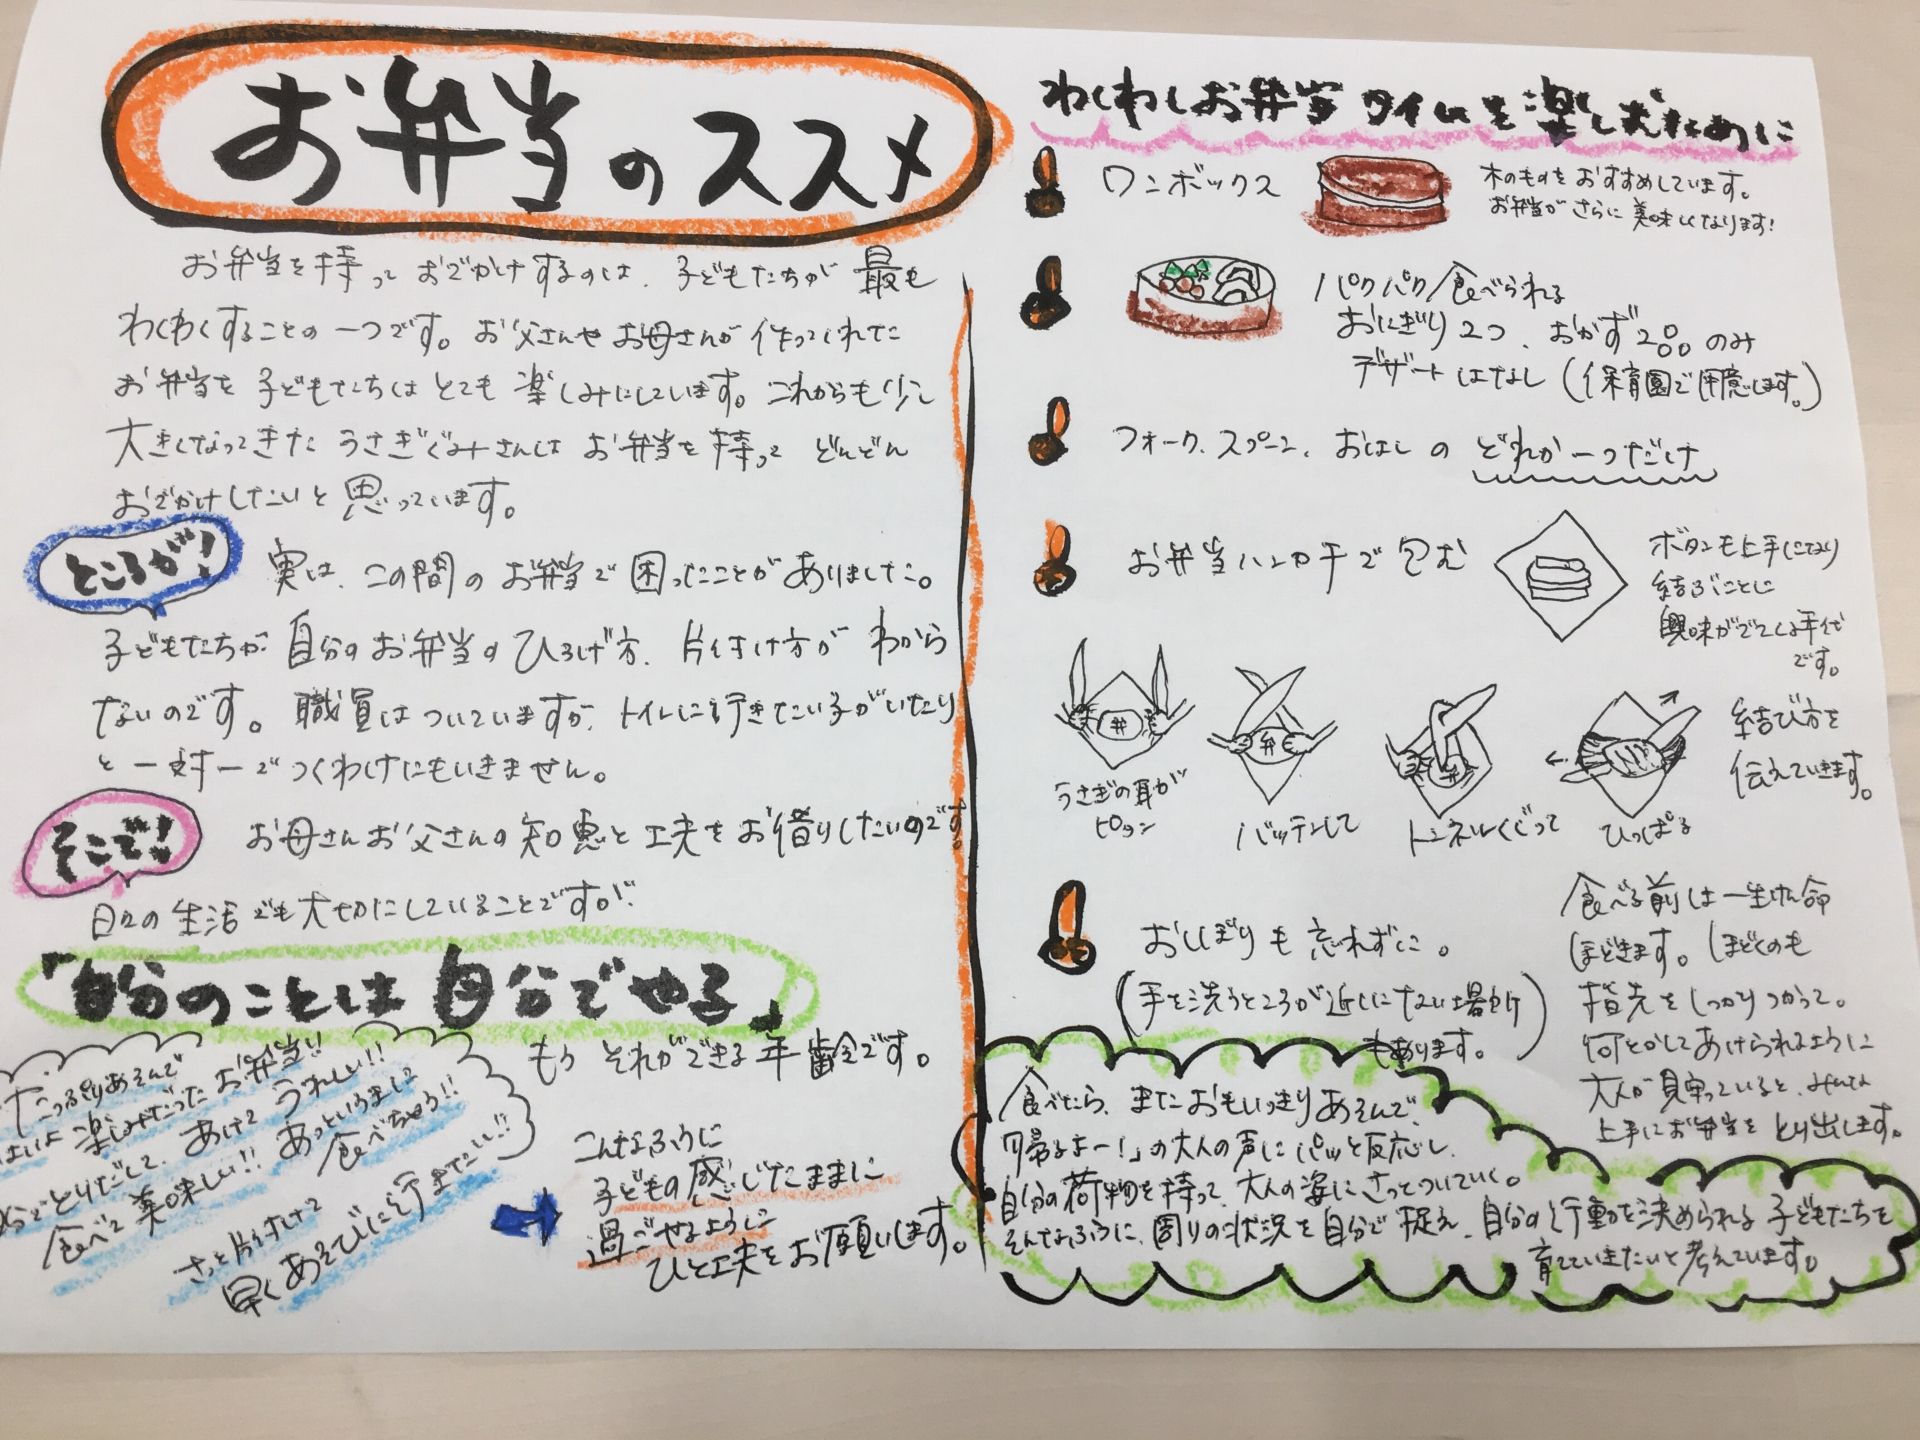 お弁当のススメ
お弁当を持っておでかけするのは、子どもたちが最も
わくわくすることの一つです。お父さんやお母さんが作ってくれた
お弁当を子どもたちはとても楽しみにしています。これからも少し
大きくなってきたうさぎぐみさんはお弁当を持ってどんどん
おでかけしたいと思っています。
ところが!
実は、この間のお弁当で困ったことがありました。
子どもたちが自分のお弁当のひろげ方、片付け方がわから
ないのです。職員はついていますが、トイレに行きたい子がいたり
と一対一でつくわけにもいきません。
そこで!
お母さんお父さんの知恵と工夫をお借りしたいのです。
日々の生活でも大切にしていることですが、
「自分のことは自分でやる」
もうそれができる年齢です。
たっぷりあそんで
楽しみだったお弁当!!
とりだして、あけてうれしい!!
食べて美味しい!! あっというまに
食べちゃう!!
さっと片付けて
早くあそびに行きたい!!
こんなふうに
子どもの感じたままに
過ごせるように
ひと工夫をお願いします。
わくわくお弁当タイムを楽しむために
ワンボックス
木のものをおすすめしています。
お弁当がさらに美味しくなります!
パクパク食べられる
おにぎり2つ、おかず2つのみ
デザートはなし(保育園で用意します。)
フォーク、スプーン、おはしのどれか一つだけ
お弁当ハンカチで包む
ボタンも上手になり
結ぶことに
興味がでてくる年代
です。
弁
弁
弁
うさぎの耳が
ピョン
バッテンして
トンネルくぐって
ひっぱる
結び方を
伝えていきます。
おしぼりも忘れずに。
(手を洗うところが近くにない場所
もあります。)
食べる前は一生けん命
ほどきます。ほどくのも
指先をしっかりつかって。
何とかしてあけられるように
大人が見守っていると、みんな
上手にお弁当をとり出します。
食べたら、またおもいっきりあそんで、
「帰るよー!」の大人の声にパッと反応し、
自分の荷物を持って、大人の姿にさっとついていく。
そんなふうに、周りの状況を自分で捉え、自分の行動を決められる子どもたちを
育てていきたいと考えています。